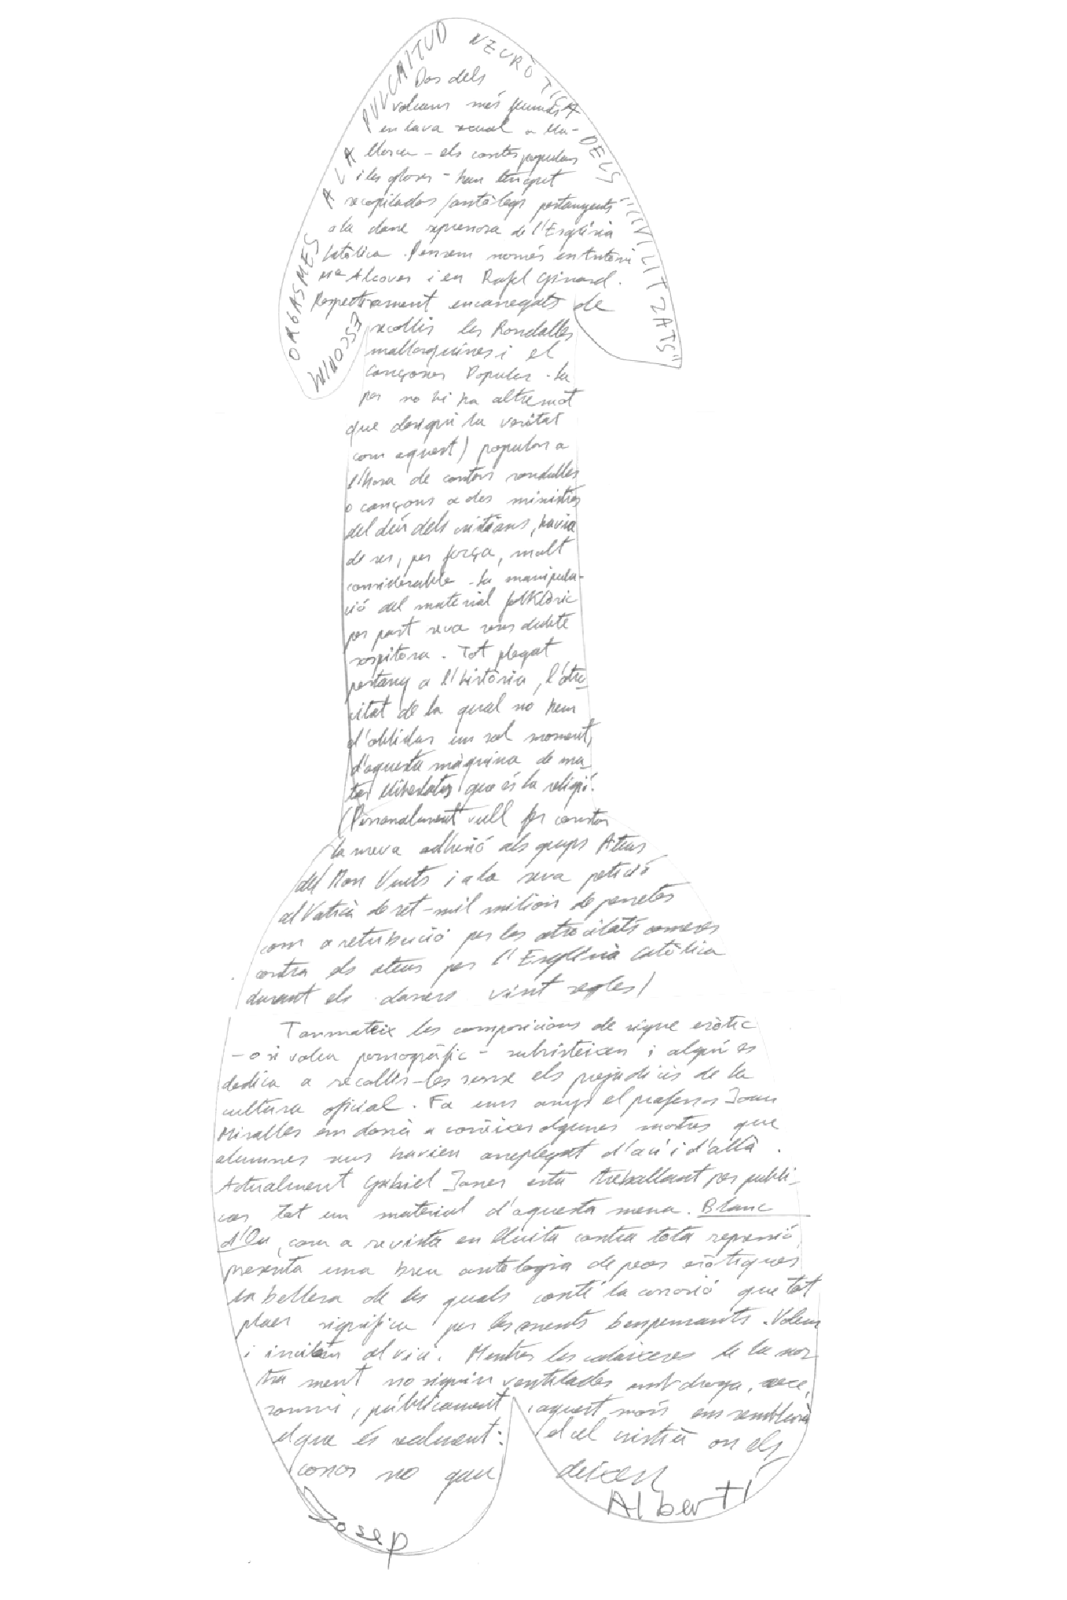 ESCOPIM ORGASMES A LA PULCRITUD NEURÒTICA DELS "CIVILITZATS"
Dos dels
volcans més
en lava sexual a Ma-
llorca – els contes populars
i les gloses – han tingut
recopiladors / antòlegs pertanyents
a la classe repressora de l'Església
Catòlica. Pensem només en Antoni
Mª Alcover i en Rafel Ginard.
Respectivament encarregats de
recollir les Rondalles
mallorquines i el
Cançoner Popular. La
por no hi ha altre mot
que designi la veritat
com aquest) popular a
l'hora de contar rondalles
o cançons a dos ministres
del déu dels cristians, havia
de ser, per força, molt
considerable. La manipula-
ció del material folklòric
per part seva
sospitosa. Tot plegat
pertany a l'història, l'atro-
citat de la qual no hem
d'oblidar un sol moment,
d'aquesta màquina de ma-
tar llibertats que és la religió.
(Personalment vull fer constar
la meva adhesió als grups Ateus
del Mon Units i a la seva petició
al Vaticà de set-mil milions de pessetes
com a retribució per les atrocitats comeses
contra els ateus per l'Església Catòlica
durant els darrers vint segles)
Tanmateix les composicions de signe eròtic
– o si voleu pornogràfic – subsisteixen i algú es
dedica a recollir-les sense els prejudicis de la
cultura oficial. Fa uns anys el professor Joan
Miralles em donà a conèixer algunes mostres que
alumnes seus havien arreplegat d'ací i d'allà.
Actualment Gabriel Janer està treballant per publi-
car tot un material d'aquesta mena. Blanc
d'Ou, com a revista en lluita contra tota repressió,
presenta una breu antologia de peces eròtiques
la bellesa de les quals conté la corrosió que tot
plaer significa per les ments benpensants. Volem
i incitam al vici. Mentres les calaixeres de la nos-
tra ment no siguin ventilades amb droga, sexe,
somni, públicament, aquest món ens semblarà
el que és realment: el cel cristià on els
cossos no gau deixen
Josep Albertí